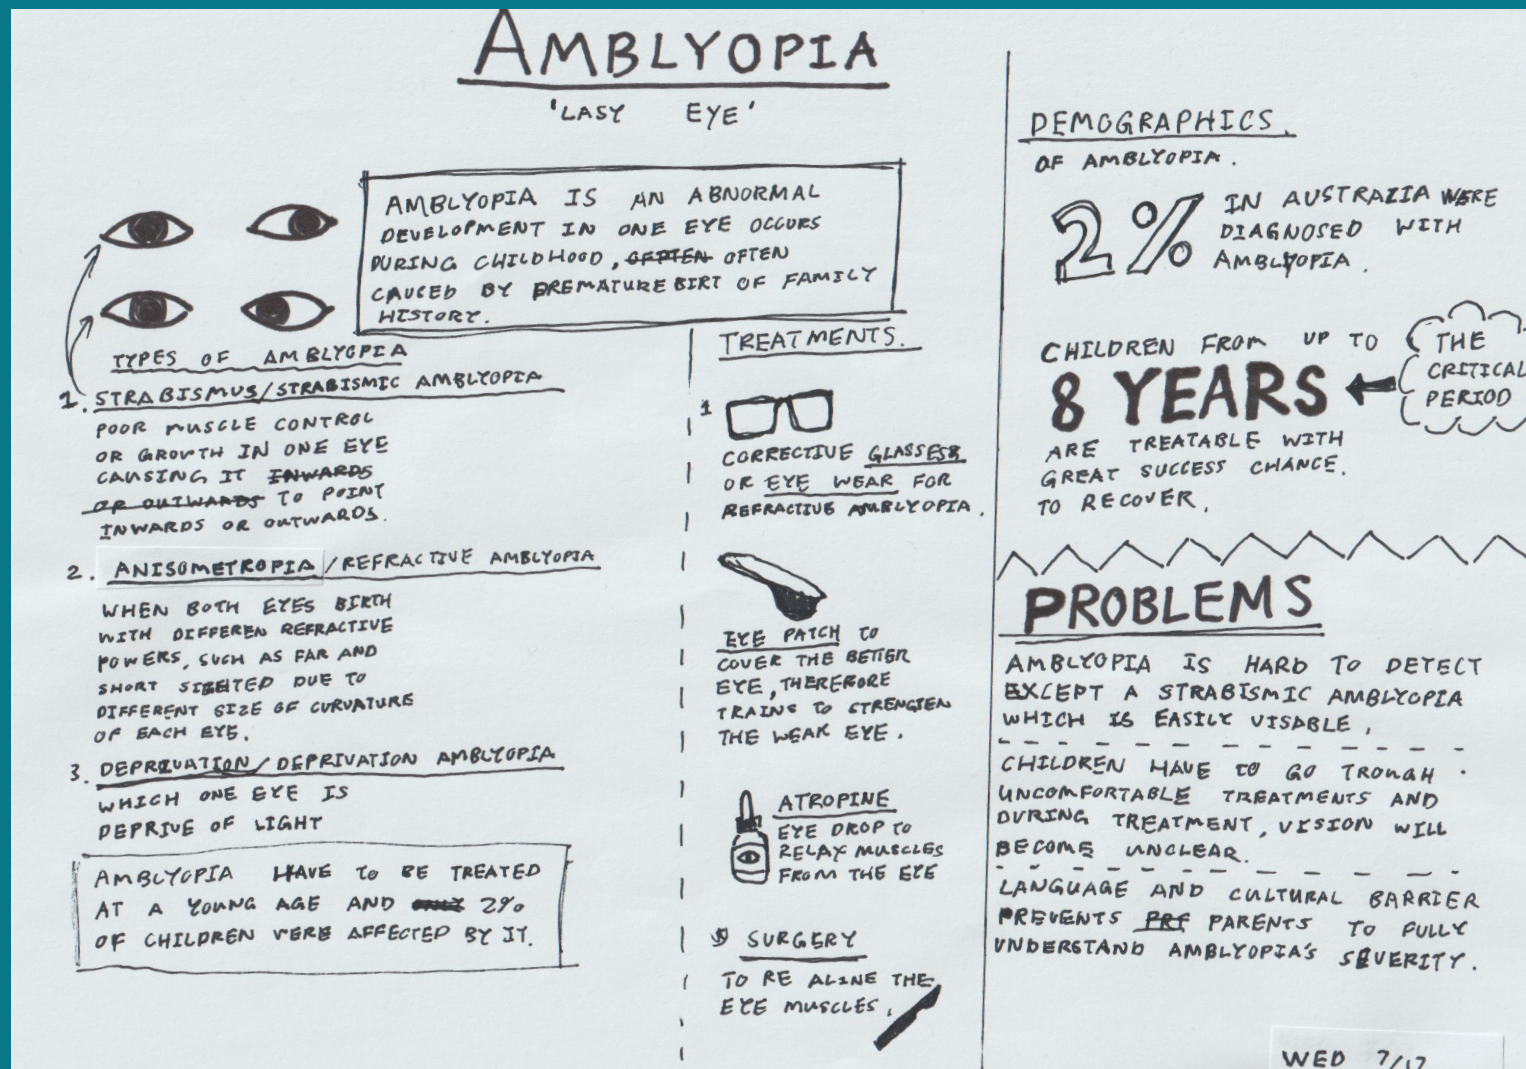 AMBLYOPIA
'LASY EYE'
AMBLYOPIA IS AN ABNORMAL
DEVELOPMENT IN ONE EYE OCCURS
DURING CHILDHOOD, OFPTEN OFTEN
CAUSED BY PREMATURE BIRT OF FAMILY
HISTORY.
TYPES OF AMBLYOPIA
1. STRABISMUS/STRABISMIC AMBLYOPIA
POOR MUSCLE CONTROL
OR GROWTH IN ONE EYE
CAUSING IT INWARDS
OR OUTWARDS TO POINT
INWARDS OR OUTWARDS.
2. ANISOMETROPIA/REFRACTIVE AMBLYOPIA
WHEN BOTH EYES BIRTH
WITH DIFFEREN REFRACTIVE
POWERS, SUCH AS FAR AND
SHORT SIGHTED DUE TO
DIFFERENT SIZE OF CURVATURE
OF EACH EYE.
3. DEPRIVATION/DEPRIVATION AMBLYOPIA
WHICH ONE EYE IS
DEPRIVE OF LIGHT
AMBLYOPIA HAVE TO BE TREATED
AT A YOUNG AGE AND ONLY 2%
OF CHILDREN WERE AFFECTED BY IT.
TREATMENTS.
1
CORRECTIVE GLASSES
OR EYE WEAR FOR
REFRACTIVE AMBLYOPIA.
EYE PATCH TO
COVER THE BETTER
EYE, THEREFORE
TRAINS TO STRENGTEN
THE WEAK EYE.
ATROPINE
EYE DROP TO
RELAX MUSCLES
FROM THE EYE
SURGERY
TO RE ALINE THE
EYE MUSCLES.
DEMOGRAPHICS.
OF AMBLYOPIA.
2% IN AUSTRALIA WERE
DIAGNOSED WITH
AMBLYOPIA.
CHILDREN FROM UP TO
8 YEARS
THE
CRITICAL
PERIOD
ARE TREATABLE WITH
GREAT SUCCESS CHANCE.
TO RECOVER.
PROBLEMS
AMBLYOPIA IS HARD TO DETECT
EXCEPT A STRABISMIC AMBLYOPIA
WHICH IS EASILY VISABLE.
CHILDREN HAVE TO GO TROUGH
UNCOMFORTABLE TREATMENTS AND
DURING TREATMENT, VISION WILL
BECOME UNCLEAR.
LANGUAGE AND CULTURAL BARRIER
PREVENTS PRF PARENTS TO FULLY
UNDERSTAND AMBLYOPIA'S SEVERITY.
WED 7/17